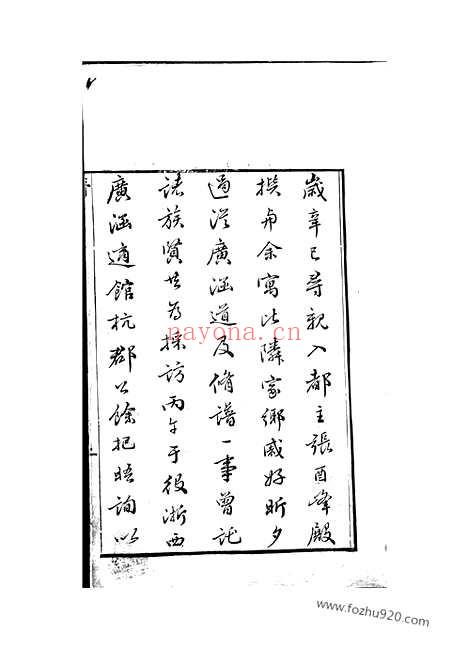 歲辛巳尋親入都主張酉峰殿
撰与余寓比隣家鄉戚好昕夕
過從廣涵道及脩譜一事曾託
諸族賢共為採訪丙午于役浙西
廣涵適館杭郡公餘把晤詢以
nayona.cn
www.fozhu920.com